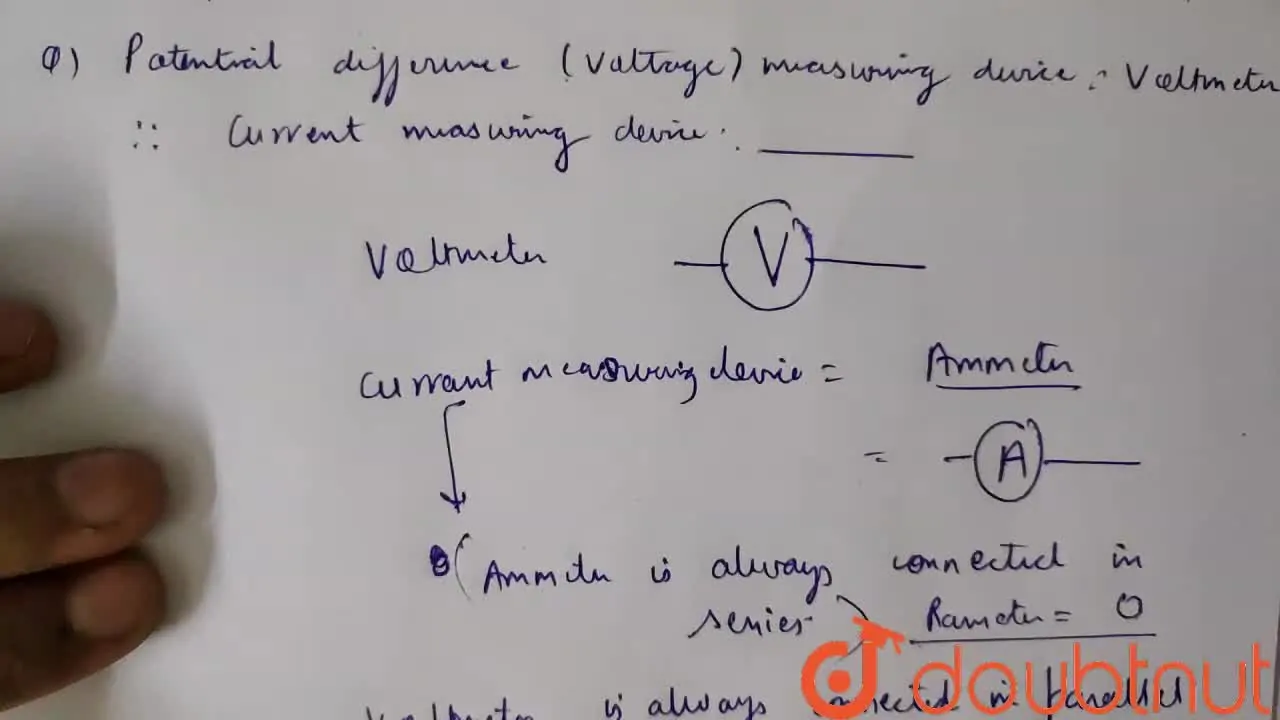 Q) Potential difference (Voltage) measuring device : Voltmeter
:: Current measuring device : ______
Voltmeter V
Current measuring device = Ammeter
= A
(Ammeter is always connected in
series. Rameter = 0
Voltmeter is always connected in parallel
doubtnut